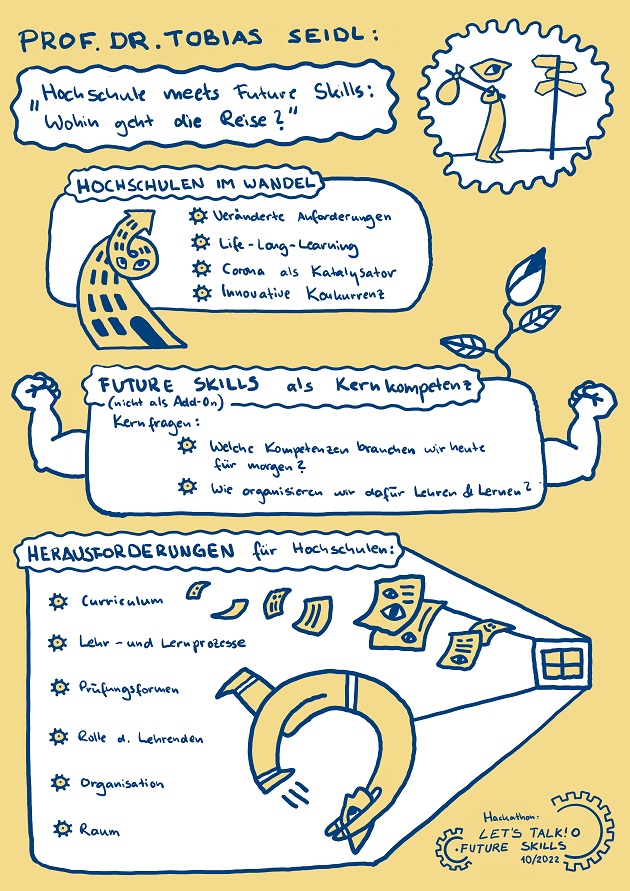 PROF. DR. TOBIAS SEIDL:
„Hochschule meets Future Skills:
Wohin geht die Reise?“
HOCHSCHULEN IM WANDEL
Veränderte Anforderungen
Life-Long-Learning
Corona als Katalysator
Innovative Konkurrenz
FUTURE SKILLS als Kernkompetenz
(nicht als Add-On)
Kernfragen:
Welche Kompetenzen brauchen wir heute
für morgen?
Wie organisieren wir dafür Lehren & Lernen?
HERAUSFORDERUNGEN für Hochschulen:
Curriculum
Lehr- und Lernprozesse
Prüfungsformen
Rolle d. Lehrenden
Organisation
Raum
Hackathon:
LET'S TALK!
FUTURE SKILLS
10/2022